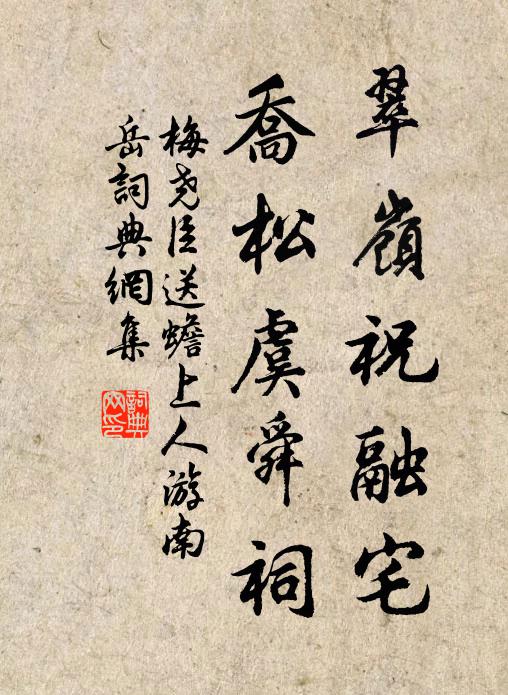 翠嶺祝融宅
喬松虞舜祠
梅堯臣送蟾上人游南
岳詞典網集
詞典网印